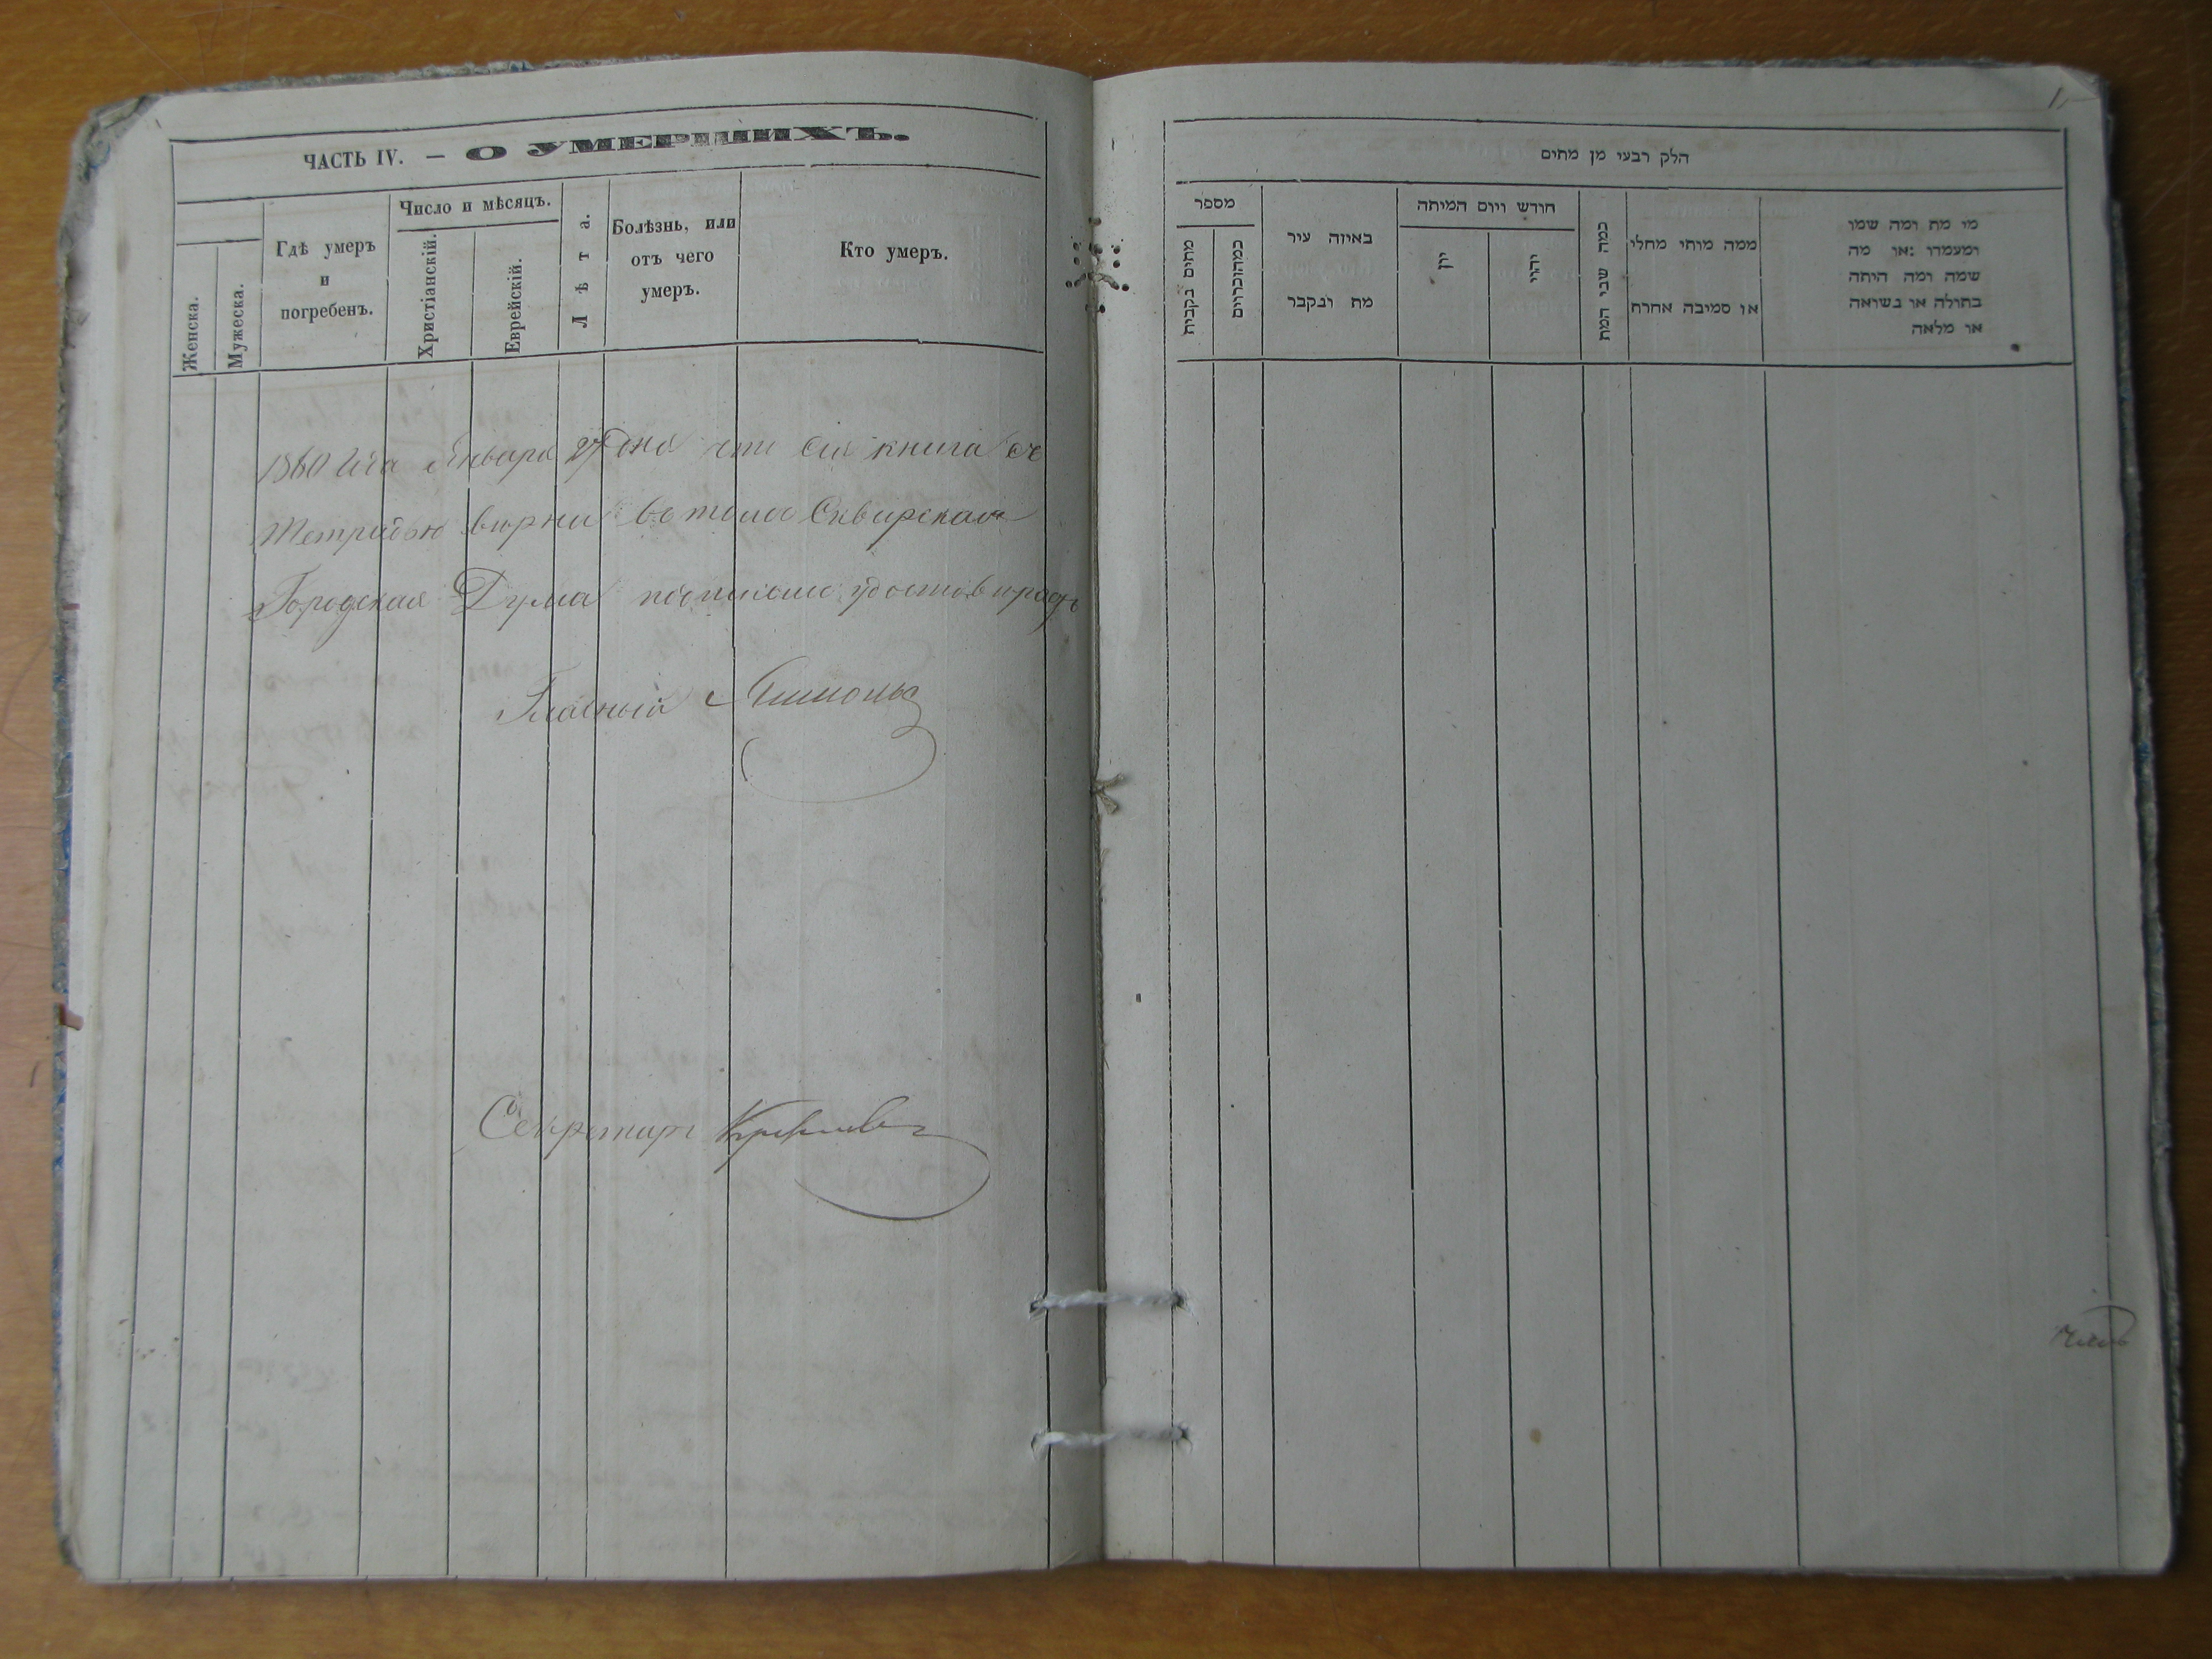 ЧАСТЬ IV. — О УМЕРШИХЪ.
Женска.
Мужеска.
Гдѣ умеръ
и
погребенъ.
Число и мѣсяцъ.
Христіанскій.
Еврейскій.
Лѣта.
Болѣзнь, или
отъ чего
умеръ.
Кто умеръ.
1860 Января дня что сія книга съ
тетрадью вѣрна въ томъ Сквирская
Городская Дума удостовѣряетъ
Гласный
Секретарь
הלק רבעי מן מתים
מספר
מתים נקבית
באיזה עיר
מת ונקבר
חודש ויום המיתה
יון
יהוי
כמה שני המת
ממה מותי מחלי
או סמיבה אחרת
מי מת ומה שמו
ומעמרו :או מה
שמה ומה היתה
בתולה או נשואה
או מלאה